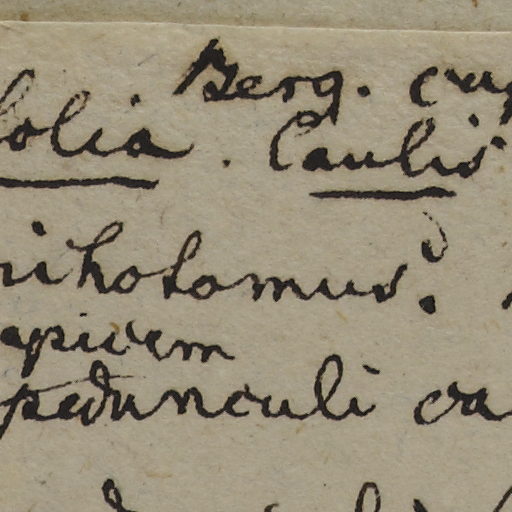 Berg. cap
folia. Caulis
richotomus.
apicem
pedunculi ca